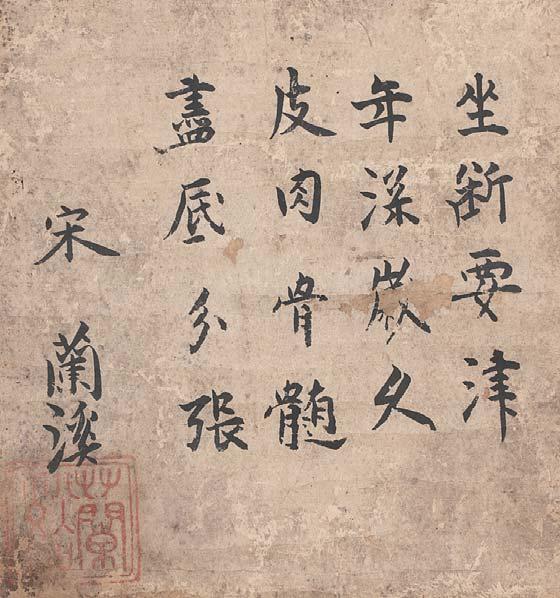 坐斷要津
年深歲久
皮肉骨髓
盡底分張
宋 蘭溪